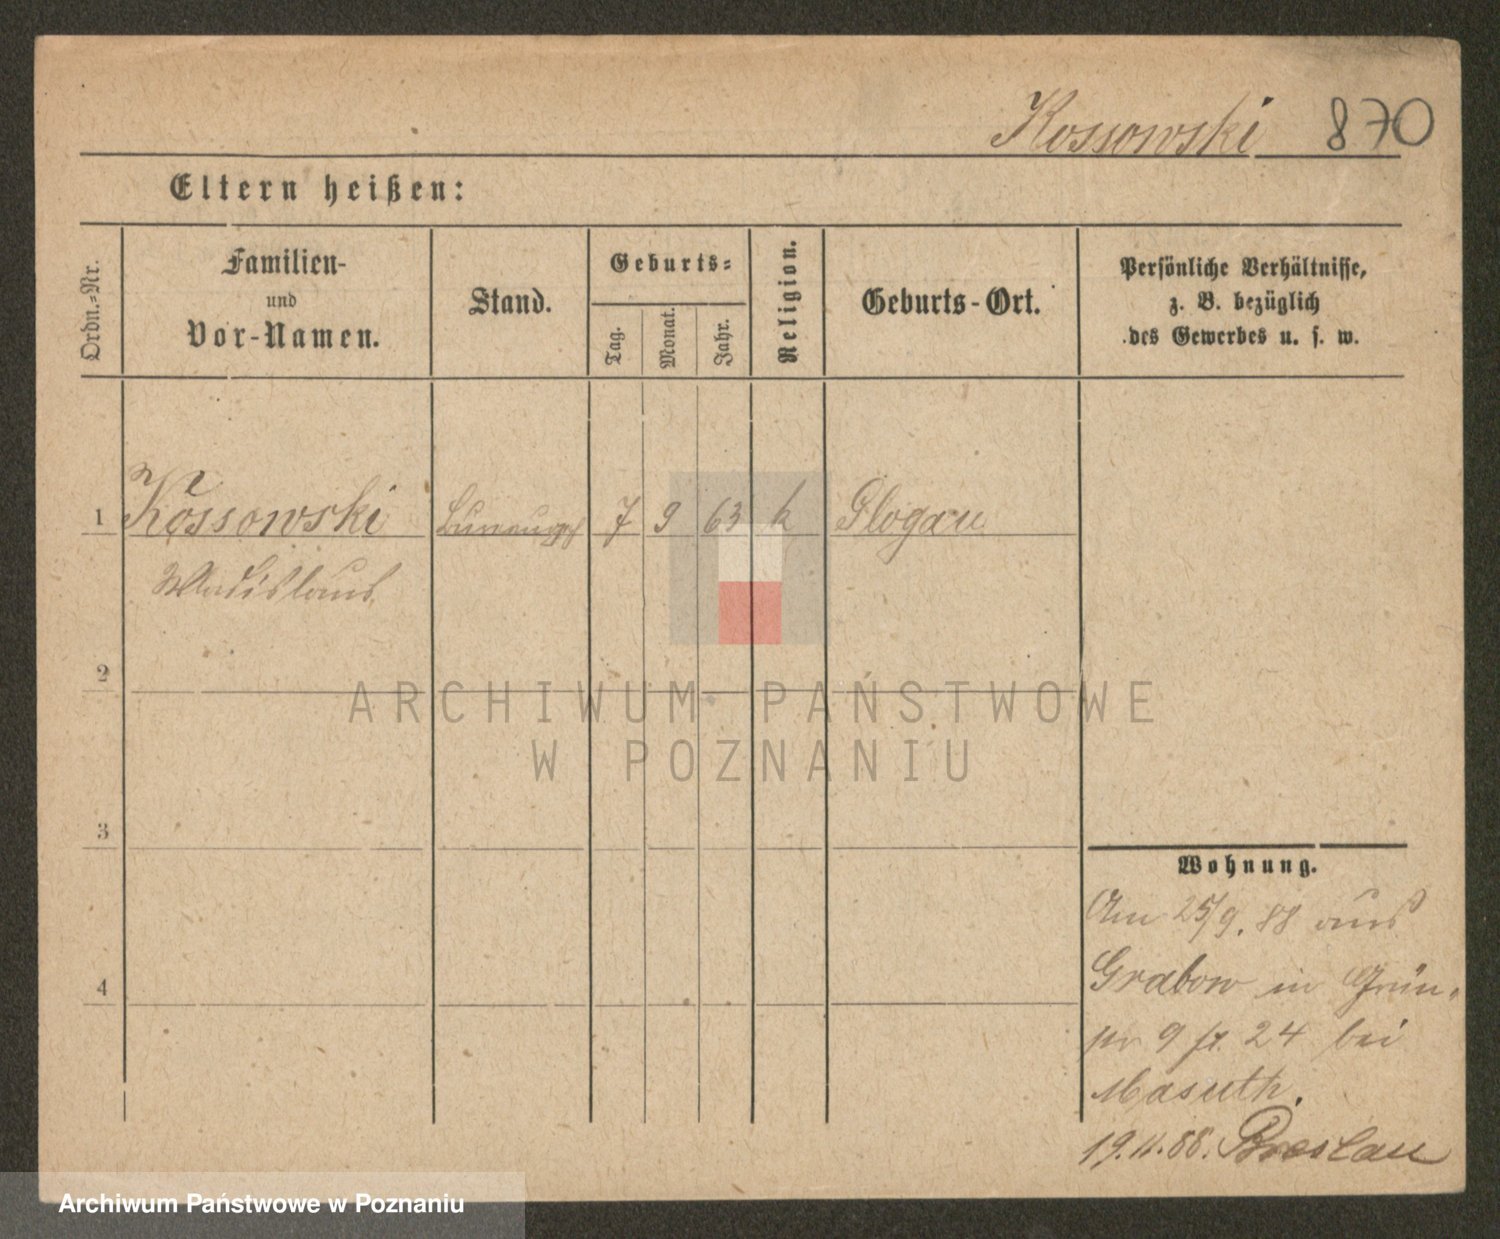 Kossowski 870
Eltern heißen:
Ordn.-Nr.
Familien-
und
Vor-Namen.
Stand.
Geburts-
Tag.
Monat.
Jahr.
Religion.
Geburts-Ort.
Persönliche Verhältnisse,
z. B. bezüglich
des Gewerbes u. s. w.
1 Kossowski 7 9 63 k Glogau
Wladislaus
2
ARCHIWUM PAŃSTWOWE
W POZNANIU
3
Wohnung.
Am 25/9. 88 aus
4
Grabow in
9 24 bei
Masuth.
19.11.88. Breslau
Archiwum Państwowe w Poznaniu